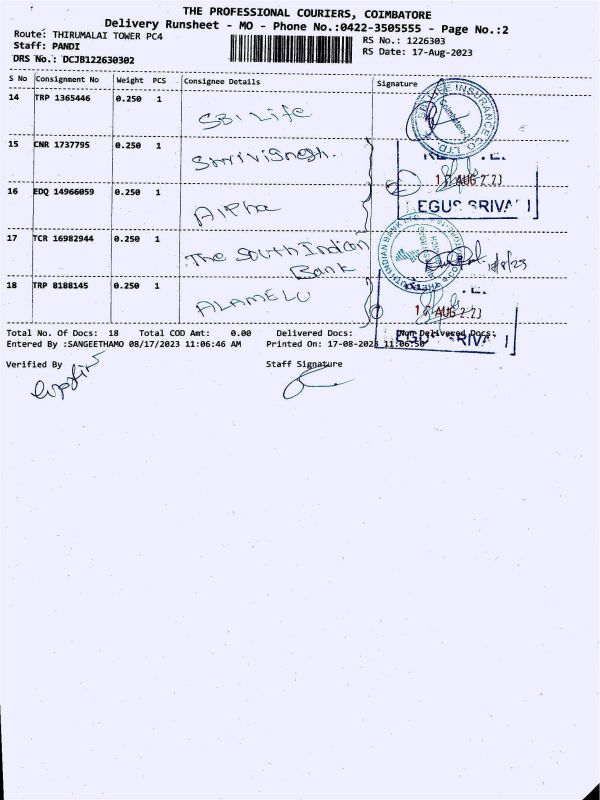 THE PROFESSIONAL COURIERS, COIMBATORE
Delivery Runsheet - MO - Phone No.:0422-3505555 - Page No.:2
Route: THIRUMALAI TOWER PC4
RS No.: 1226303
Staff: PANDI
RS Date: 17-Aug-2023
DRS No.: DCJB122630302
S No Consignment No Weight PCS Consignee Details Signature
14 TRP 1365446 0.250 1 SBI Life
15 CNR 1737795 0.250 1 Shrivignesh.
16 EDQ 14966059 0.250 1 Alpha
17 TCR 16982944 0.250 1 The South Indian
Bank
18 TRP 8188145 0.250 1 ALAMELU
Total No. Of Docs: 18 Total COD Amt: 0.00 Delivered Docs: Non Delivered Docs:
Entered By :SANGEETHAMO 08/17/2023 11:06:46 AM Printed On: 17-08-2023 11:06:50
Verified By Staff Signature